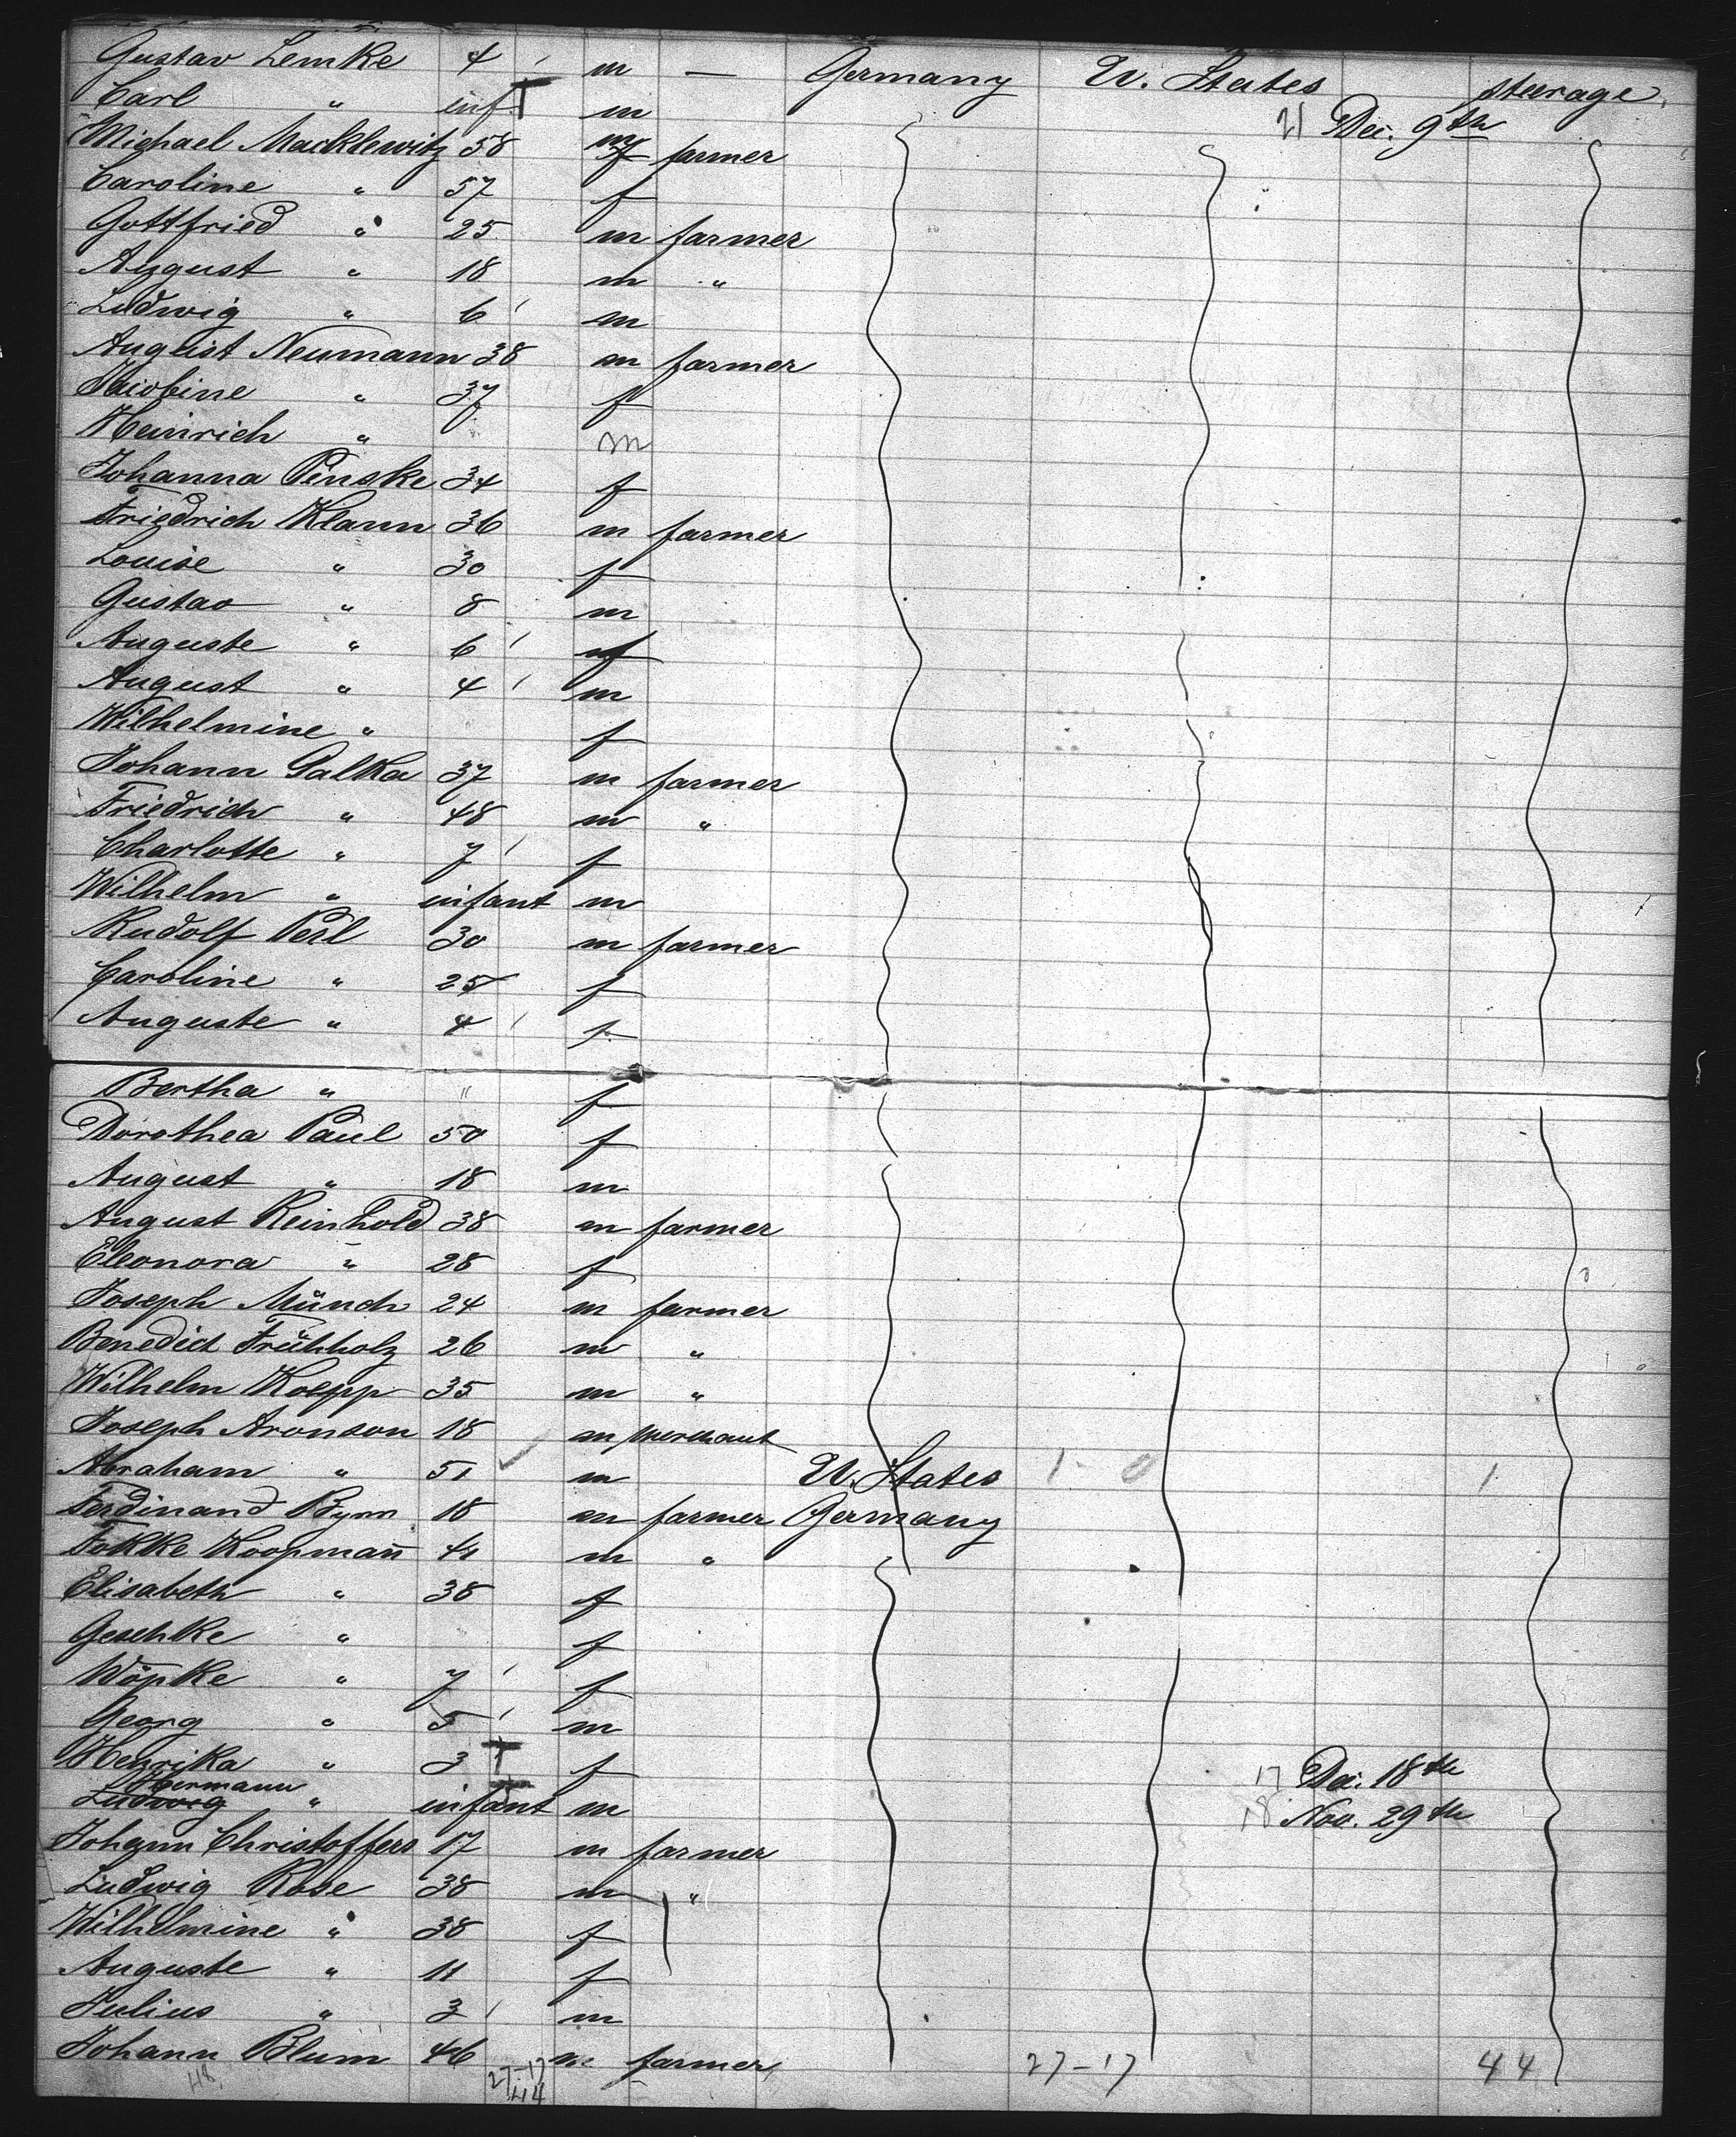 Gustav Lemke 4 m — Germany U. States steerage
Carl " inf. m 21 Dec. 9th
Michael Macklewitz 58 m farmer
Caroline " 57 f
Gottfried " 25 m farmer
August " 18 m "
Ludwig " 6 m
August Neumann 38 m farmer
Jacobine " 37 f
Heinrich " m
Johanna Penske 34 f
Friedrich Klann 36 m farmer
Louise " 30 f
Gustav " 8 m
Auguste " 6 f
August " 4 m
Wilhelmine " f
Johann Galka 37 m farmer
Friedrich " 48 m "
Charlotte " 7 f
Wilhelm " infant m
Rudolf Peil 30 m farmer
Caroline " 25 f
Auguste " 4 f
Bertha " " f
Dorothea Paul 50 f
August " 18 m
August Reinhold 38 m farmer
Eleonora " 28 f
Joseph Münch 24 m farmer
Benedict Frühholz 26 m "
Wilhelm Koepp 35 m "
Joseph Aronson 18 m merchant
Abraham " 51 m U. States 1 - 0 1
Ferdinand Bym 18 m farmer Germany
Fokke Koopmann 41 m "
Elisabeth " 38 f
Geschke " f
Wöpke " 7 f
Georg " 5 m
Henrika " 3 f 17 Dec. 18th
Hermann
Ludwig " infant m 18 Nov. 29th
Johann Christoffers 17 m farmer
Ludwig Rose 38 m "
Wilhelmine " 38 f
Auguste " 11 f
Julius " 3 m
Johann Blum 46 m farmer 27-17 44
48 27-17
44